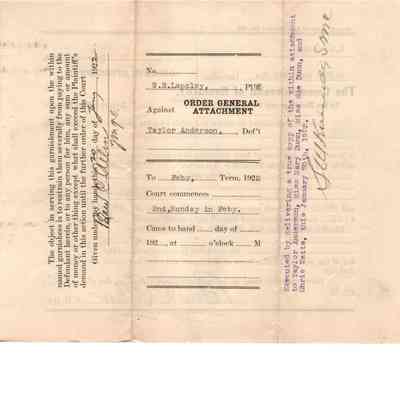 The object in serving this garnishment upon the within
named garnishees is to restrain them severally from paying to the
Defendant herein, or to any person for him, any sum or amount
of money or other thing except what shall exceed the Plaintiff's
demand in this action until the further order of this Court
Given under my hand this 20 day of Jany 1922
No.
S.B.Lapsley, Plff
Against ORDER GENERAL
ATTACHMENT
Taylor Anderson, Def't
To Feby. Term, 1922
Court commences
2nd, Monday in Feby.
Came to hand day of
192 at o'clock M
Executed by delivering a true copy of the within attachment
to Taylor Anderson, Miss Mary Dunn, Miss Sue Dunn, and
Chris Weits, this January 20th, 1922.